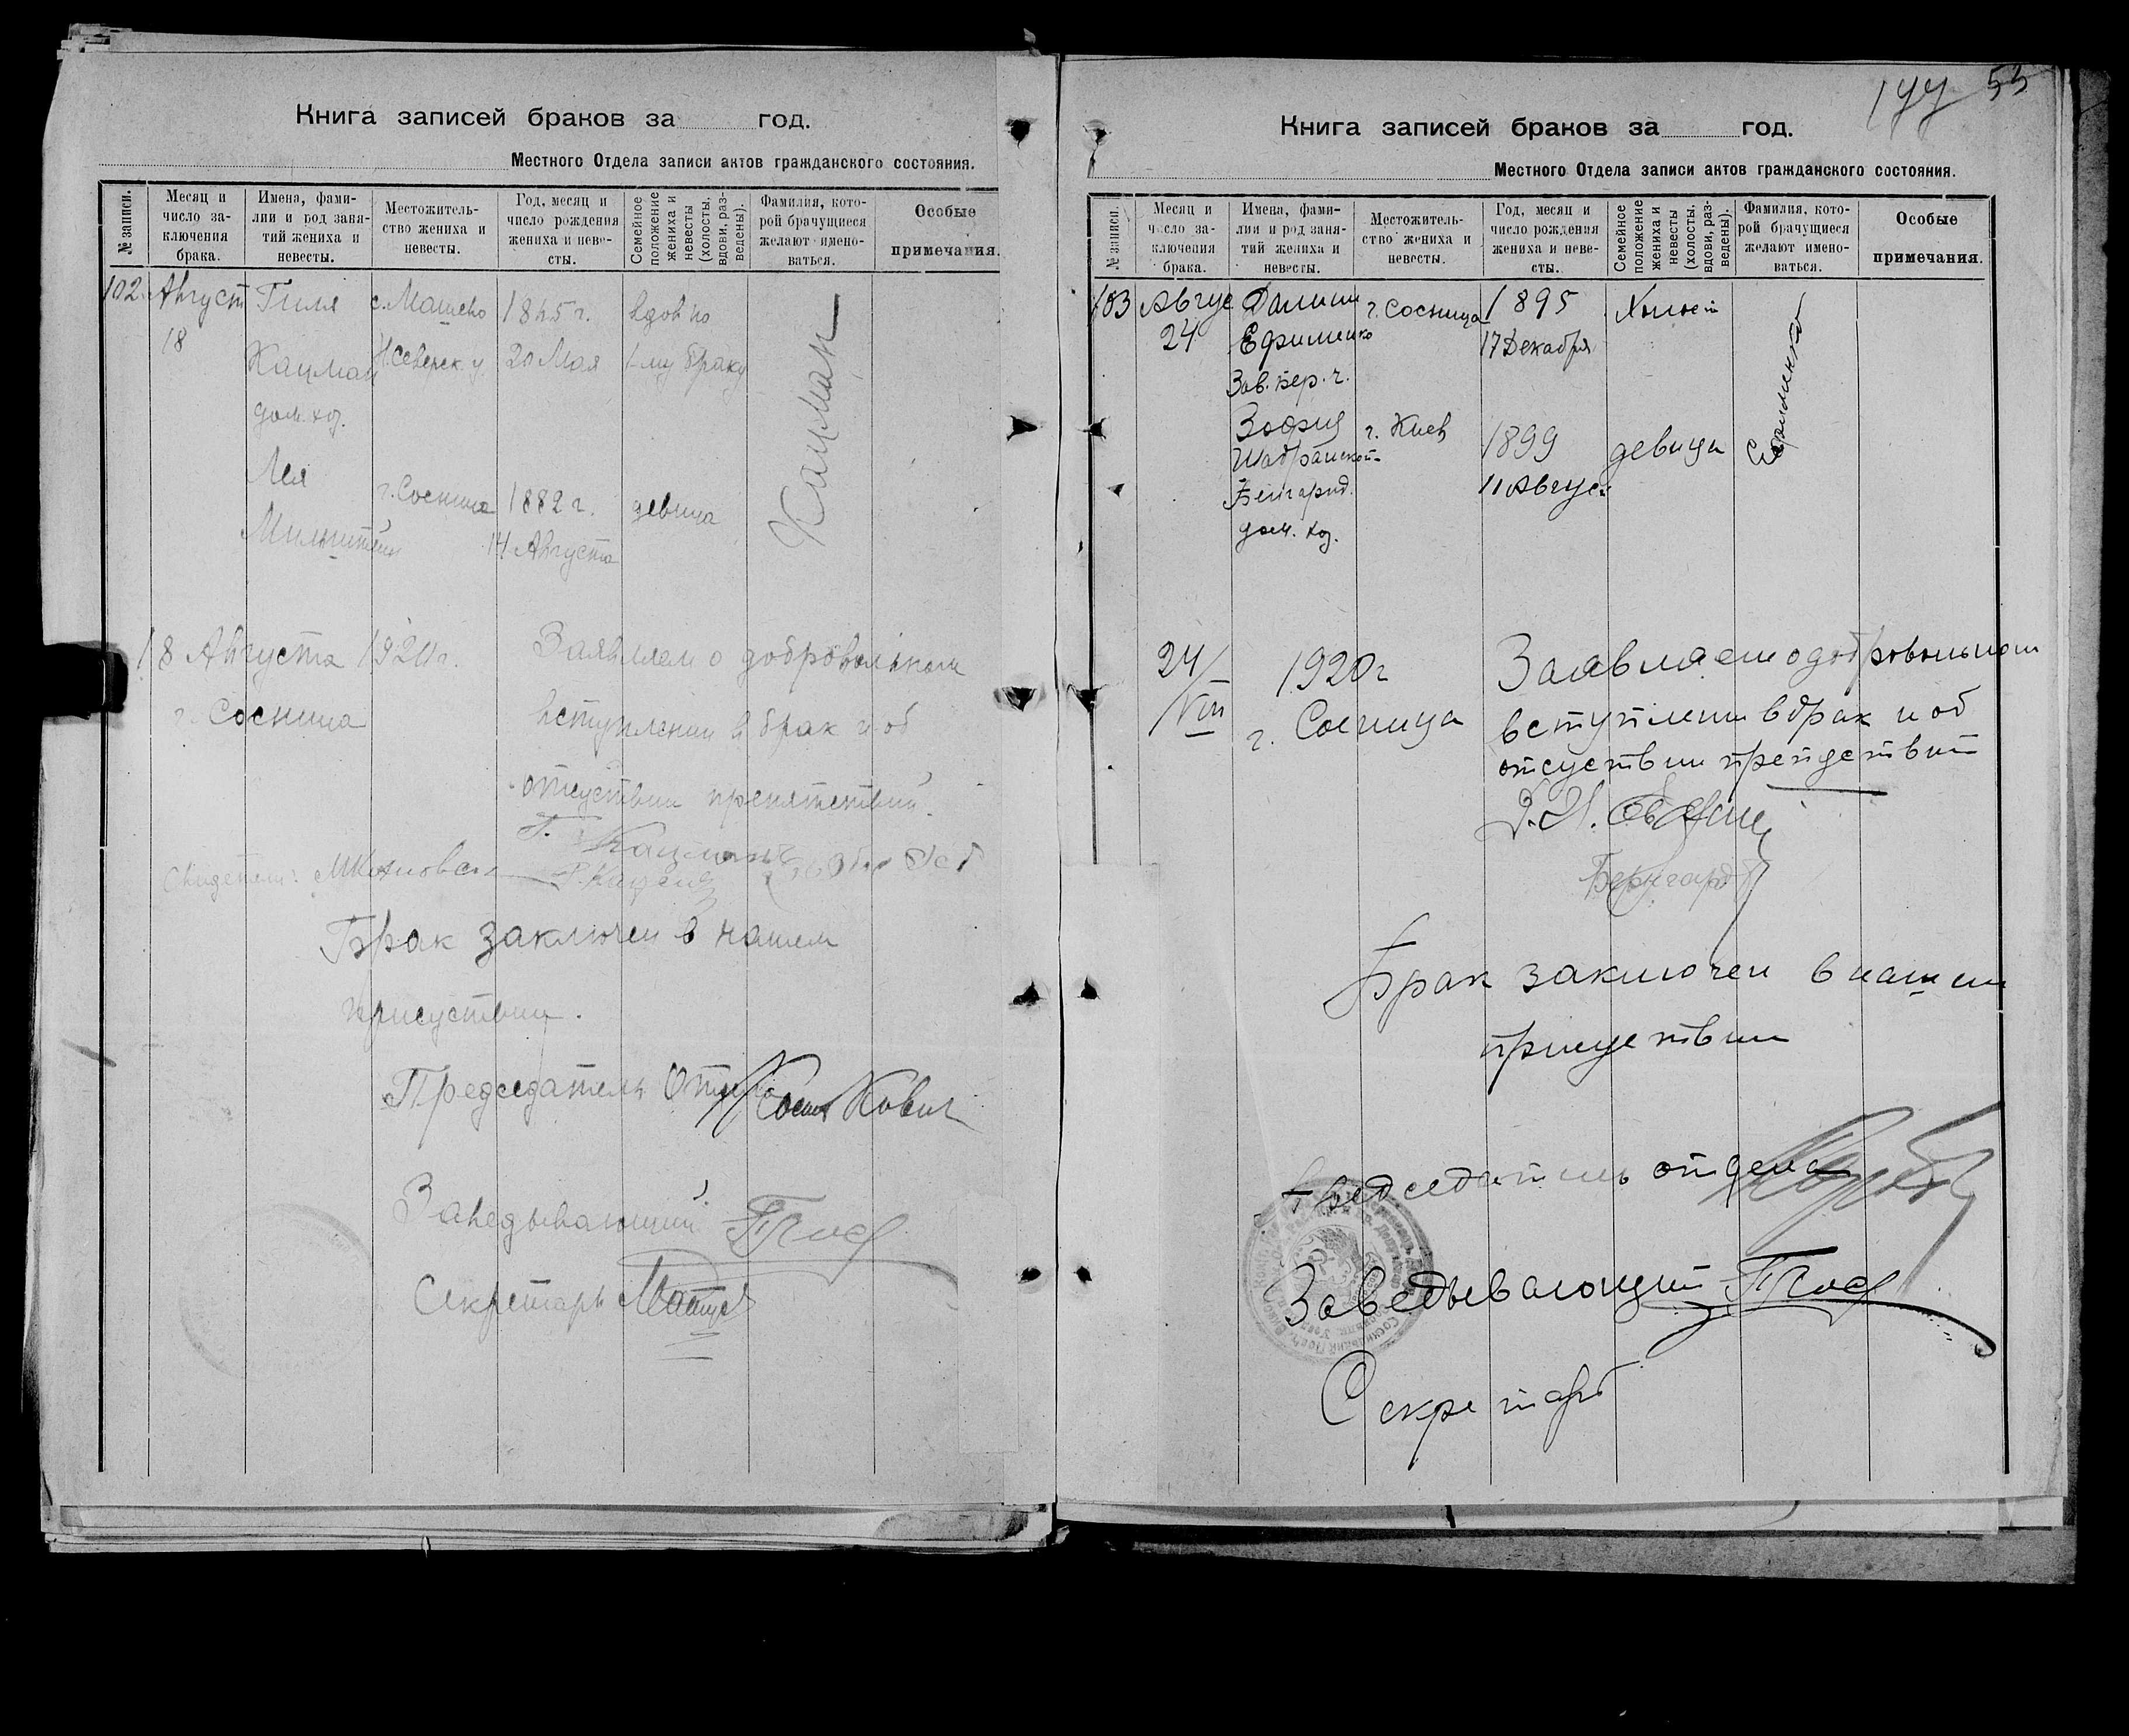 Книга записей браков за год.
Местного Отдела записи актов гражданского состояния.
№ записи.
Месяц и
число за-
ключения
брака.
Имена, фами-
лии и род заня-
тий жениха и
невесты.
Местожитель-
ство жениха и
невесты.
Год, месяц и
число рождения
жениха и неве-
сты.
Семейное
положение
жениха и
невесты
(холосты,
вдови, раз-
ведены).
Фамилия, кото-
рой брачущиеся
желают имено-
ваться.
Особые
примечания.
102.
Август
18
Гиля
Кацман
дом. хоз.
Лея
с. Машево
Н. Северск. у.
г. Сосница
20 Мая
1882 г.
14 Августа
вдов по
1-му браку
девица
Кацман
18 Августа 1920 г.
г. Сосница
Заявляем о добровольном
вступлении в брак и об
отсуствии препятствий.
Г. Кацман
Свидетели:
Брак заключен в нашем
присуствии.
Председатель
Заведывающий
Секретарь
177 53
Книга записей браков за год.
Местного Отдела записи актов гражданского состояния.
№ записи.
Месяц и
число за-
ключения
брака.
Имена, фами-
лии и род заня-
тий жениха и
невесты.
Местожитель-
ство жениха и
невесты.
Год, месяц и
число рождения
жениха и неве-
сты.
Семейное
положение
жениха и
невесты
(холосты,
вдови, раз-
ведены).
Фамилия, кото-
рой брачущиеся
желают имено-
ваться.
Особые
примечания.
103
Авгус
24
Ефименко
Зофия
дом. хоз.
г. Сосница
г. Киев
1895
17 Декабря
1899
11 Август
Холост
девица
Ефименко
24/VIII 1920 г
г. Сосница
Заявляем о добровольном
вступлении в брак и об
отсуствии препядствий
Брак заключен в нашем
присуствии
Председатель отдела
Заведывающий
Секретарь